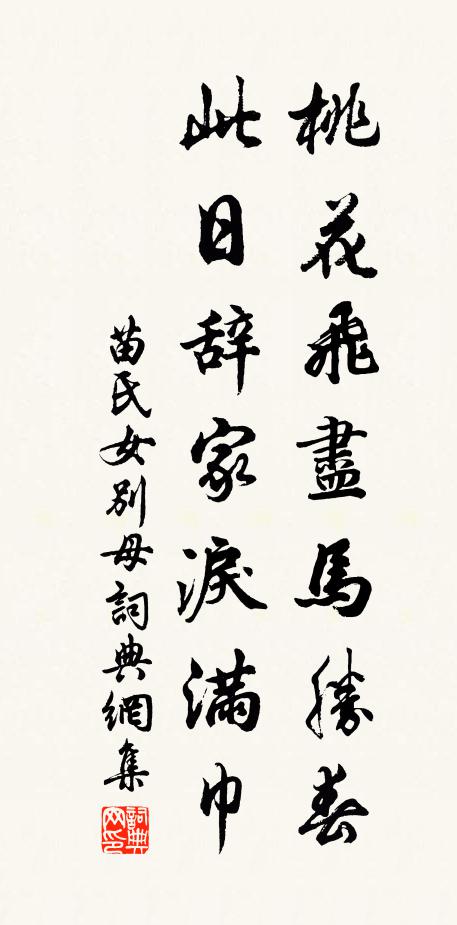 桃花飛盡馬勝春
此日辞家淚滿巾
苗氏女別母詞典網集
詞典網印